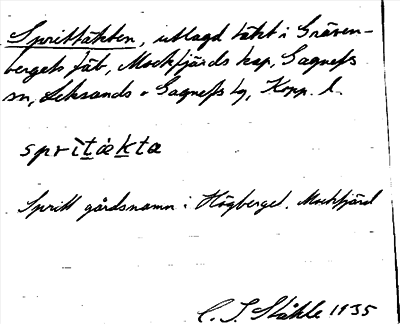 Sprittäkten, utlagd täkt i Gräven-
bergets fäb, Mockfjärds kap, Gagnefs
sn, Leksands o Gagnefs tg, Kopp. l.
sprìtækta
Spritt gårdsnamn i Högberget. Mockfjärd
C. I. Ståhle 1935